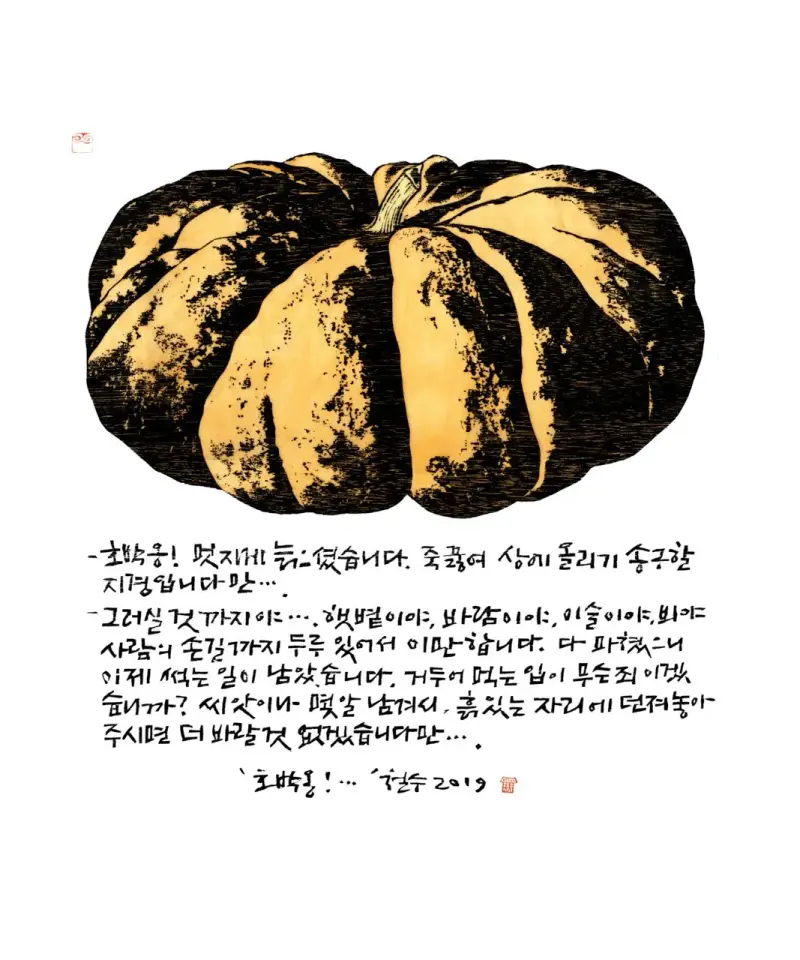 - 호박옹! 멋지게 늙으셨습니다. 죽끓여 상에 올리기 송구할
지경입니다만….
- 그러실 것 까지야…. 햇볕이야, 바람이야, 이슬이야, 봐야
사람의 손길까지 두루 있어서 이만합니다. 다 파했으니
이제 썩는 일이 남았습니다. 거두어 먹는 입이 무슨 죄이겠
습니까? 씨앗이나 몇알 남겨서, 흙있는 자리에 던져놓아
주시면 더 바랄것 없겠습니다만….
'호박옹!…' 철수 2019